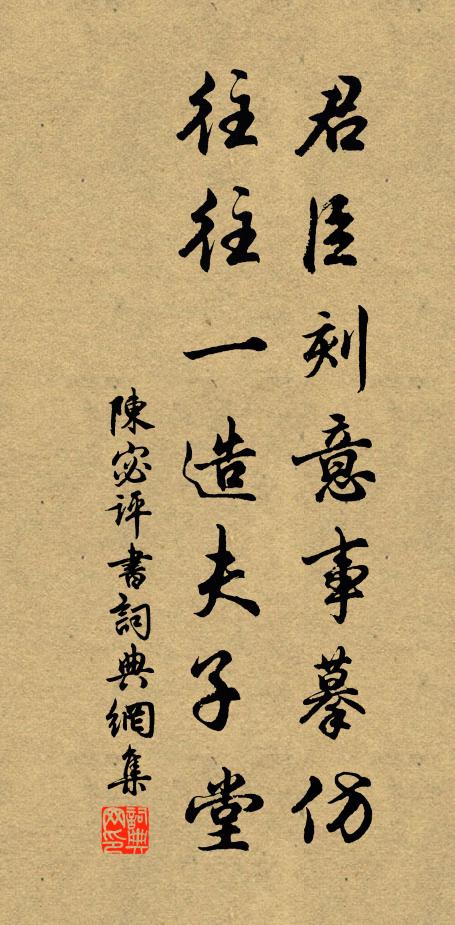 君臣刻意事摹仿
往往一造夫子堂
陳宓評書詞典網集
詞典網印